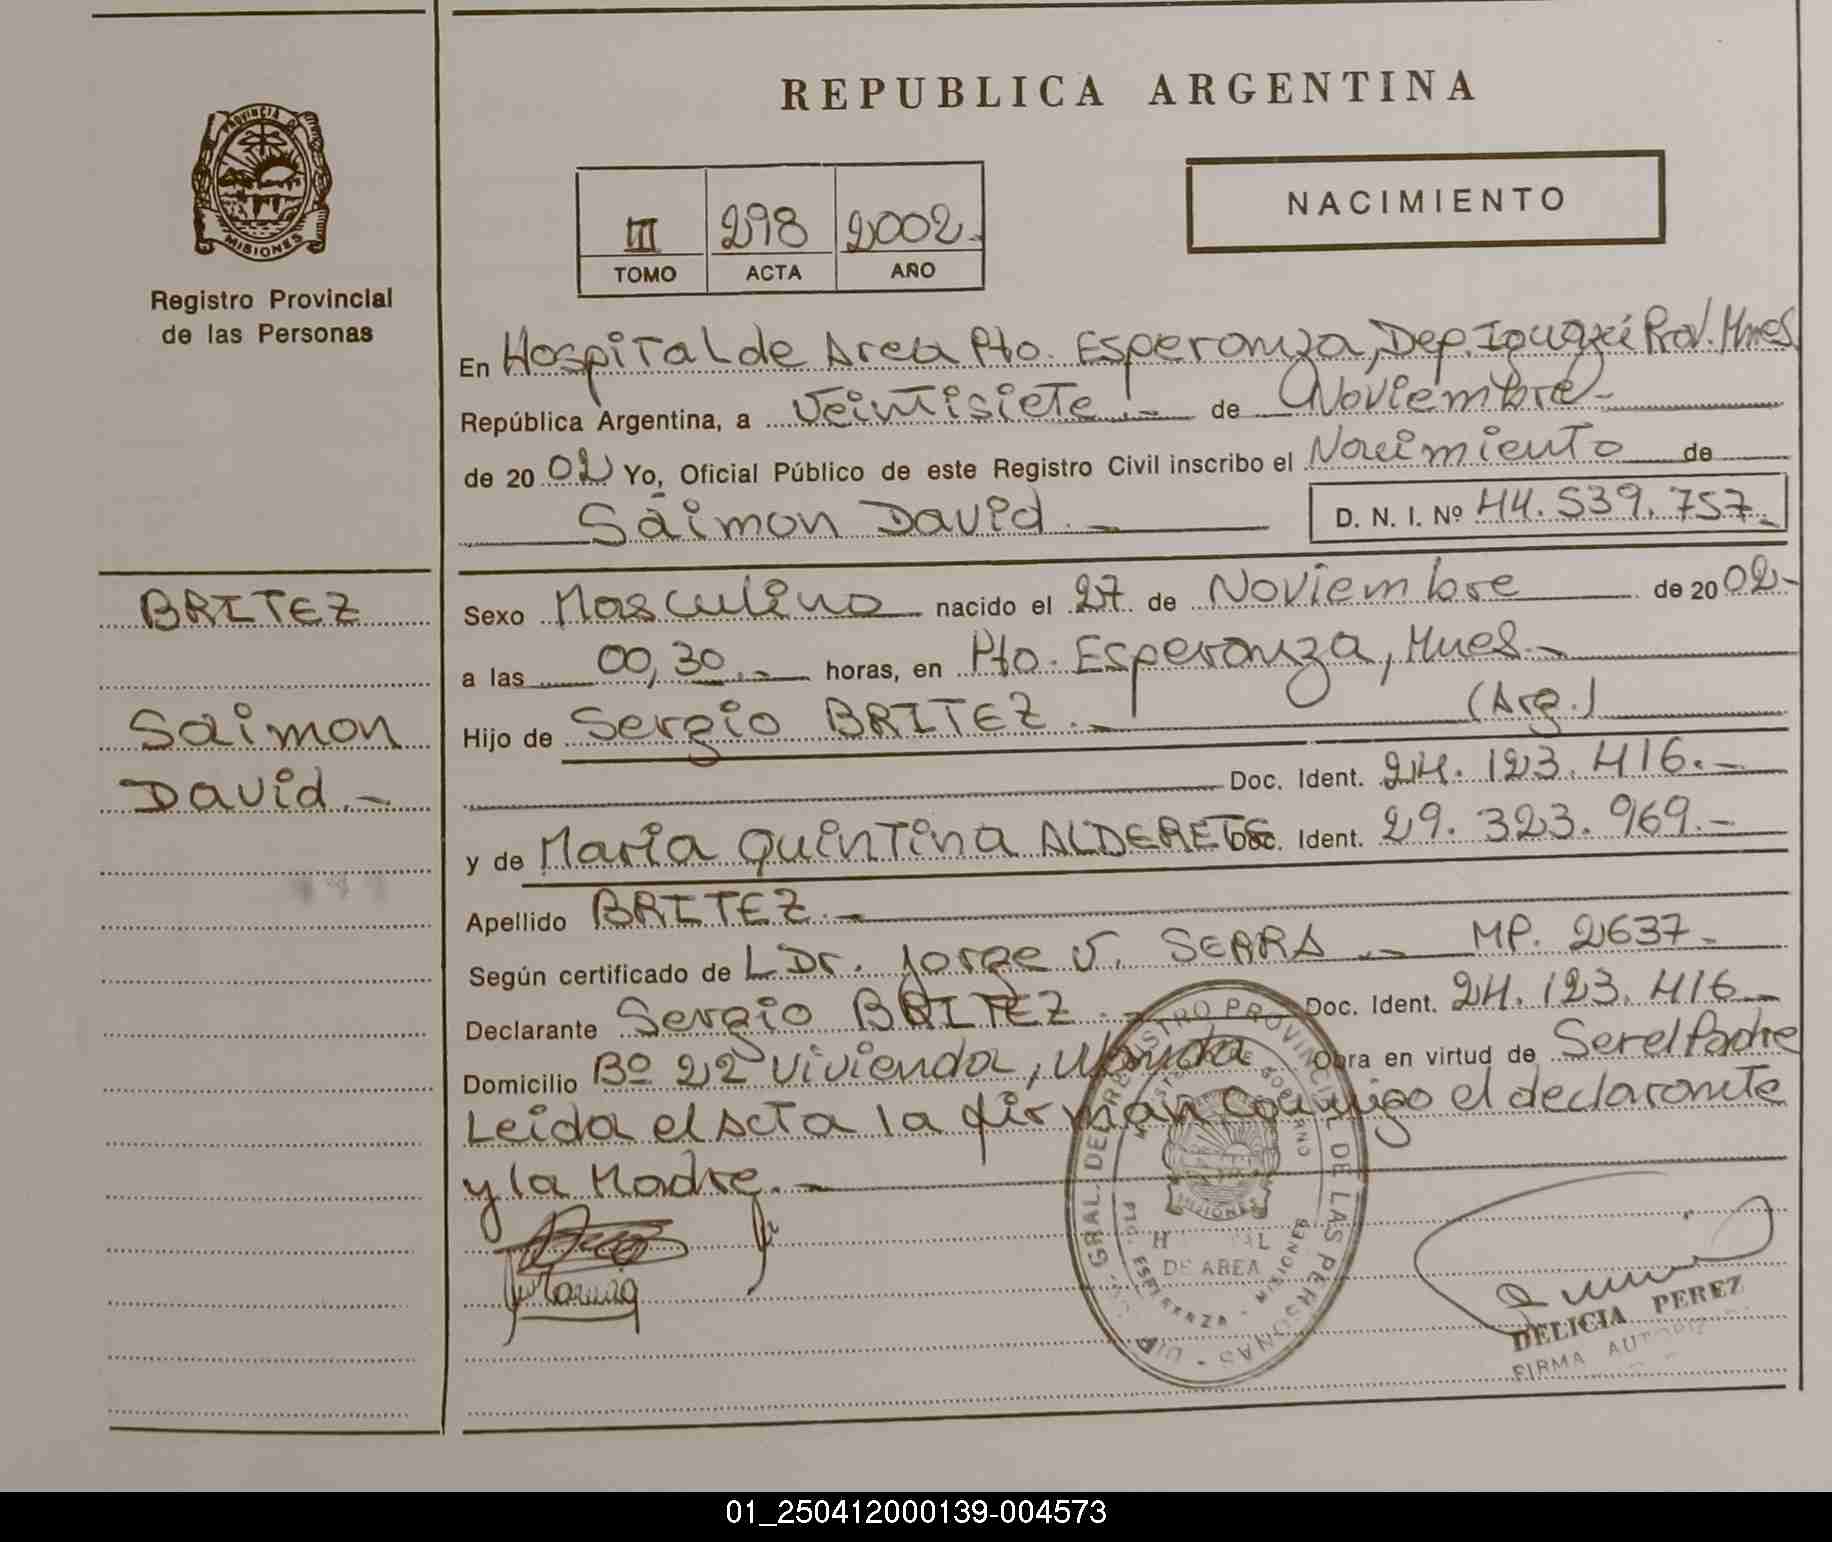 REPUBLICA ARGENTINA
PROVINCIA DE
MISIONES
Registro Provincial
de las Personas
III 298 2002.
TOMO ACTA AÑO
NACIMIENTO
En Hospital de Area Pto. Esperanza, Dep. Iguazú Prov. Mnes.
República Argentina, a veintisiete.- de Noviembre-
de 2002 Yo, Oficial Público de este Registro Civil inscribo el Nacimiento de
Saimon David.- D. N. I. Nº 44.539.757.-
BRITEZ
Saimon
David.-
Sexo Masculino nacido el 27 de Noviembre de 2002-
a las 00,30.- horas, en Pto. Esperanza, Mnes.-
Hijo de Sergio BRITEZ.- (Arg.)
Doc. Ident. 24.123.416.-
y de Maria Quintina ALDERETE Doc. Ident. 29.323.969.-
Apellido BRITEZ.-
Según certificado de L Dr. Jorge V. SERRA.- MP. 2637-
Declarante Sergio BRITEZ.- Doc. Ident. 24.123.416-
Domicilio Bº 22 Vivienda, Wanda Obra en virtud de Ser el Padre
Leida el Acta la firman conmigo el declarante
y la Madre.-
DIR. GRAL. DEL REGISTRO PROVINCIAL DE LAS PERSONAS
MISIONES
DE AREA
PTO. ESPERANZA - MISIONES
DELICIA PEREZ
FIRMA
01_250412000139-004573